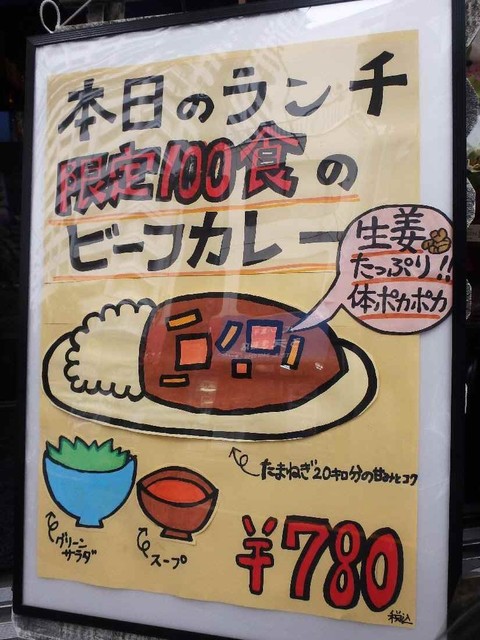 本日のランチ
限定100食の
ビーフカレー
生姜
たっぷり!!
体ポカポカ
たまねぎ20キロ分の甘みとコク
グリーン
サラダ
スープ
¥780
税込